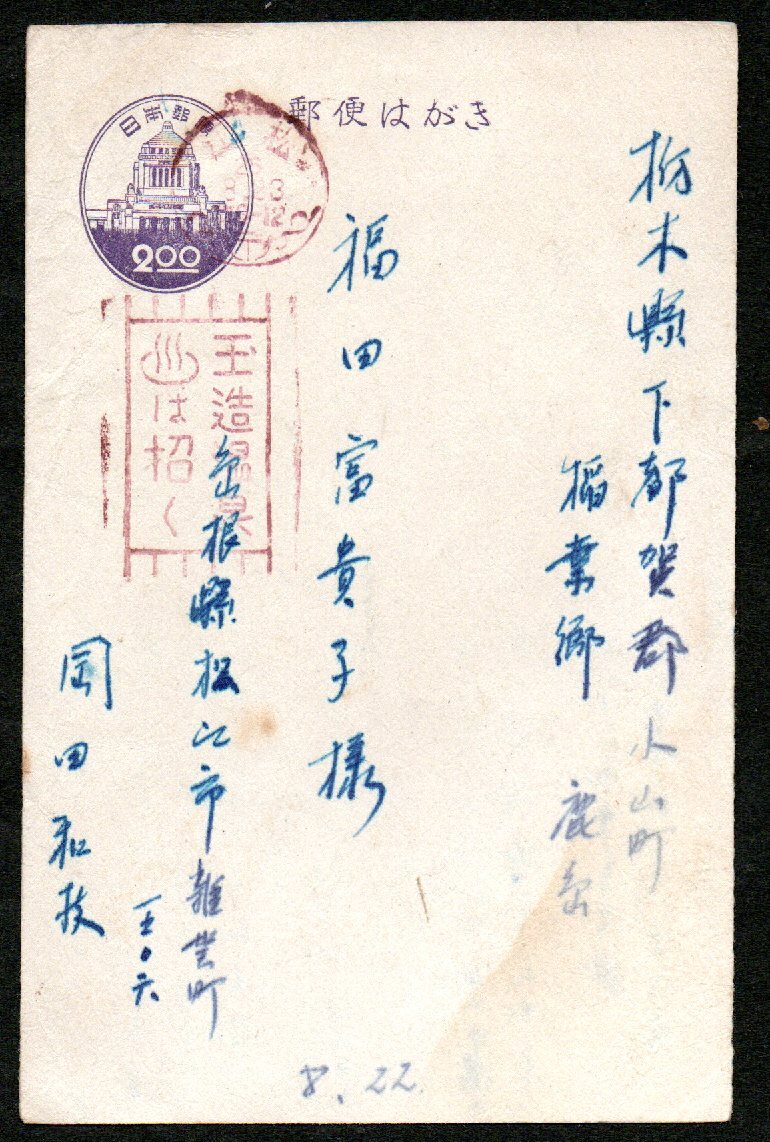 郵便はがき
日本郵便
2.00
玉造温泉
♨は招く
栃木縣下都賀郡小山町
稲葉郷
福田富貴子様
島根縣松江市雑賀町
岡田和枝
8.22